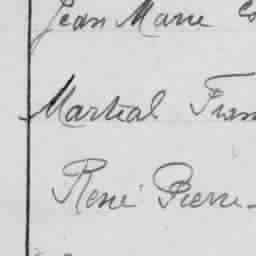 Jean Marie
Martial Fran
René Pierre